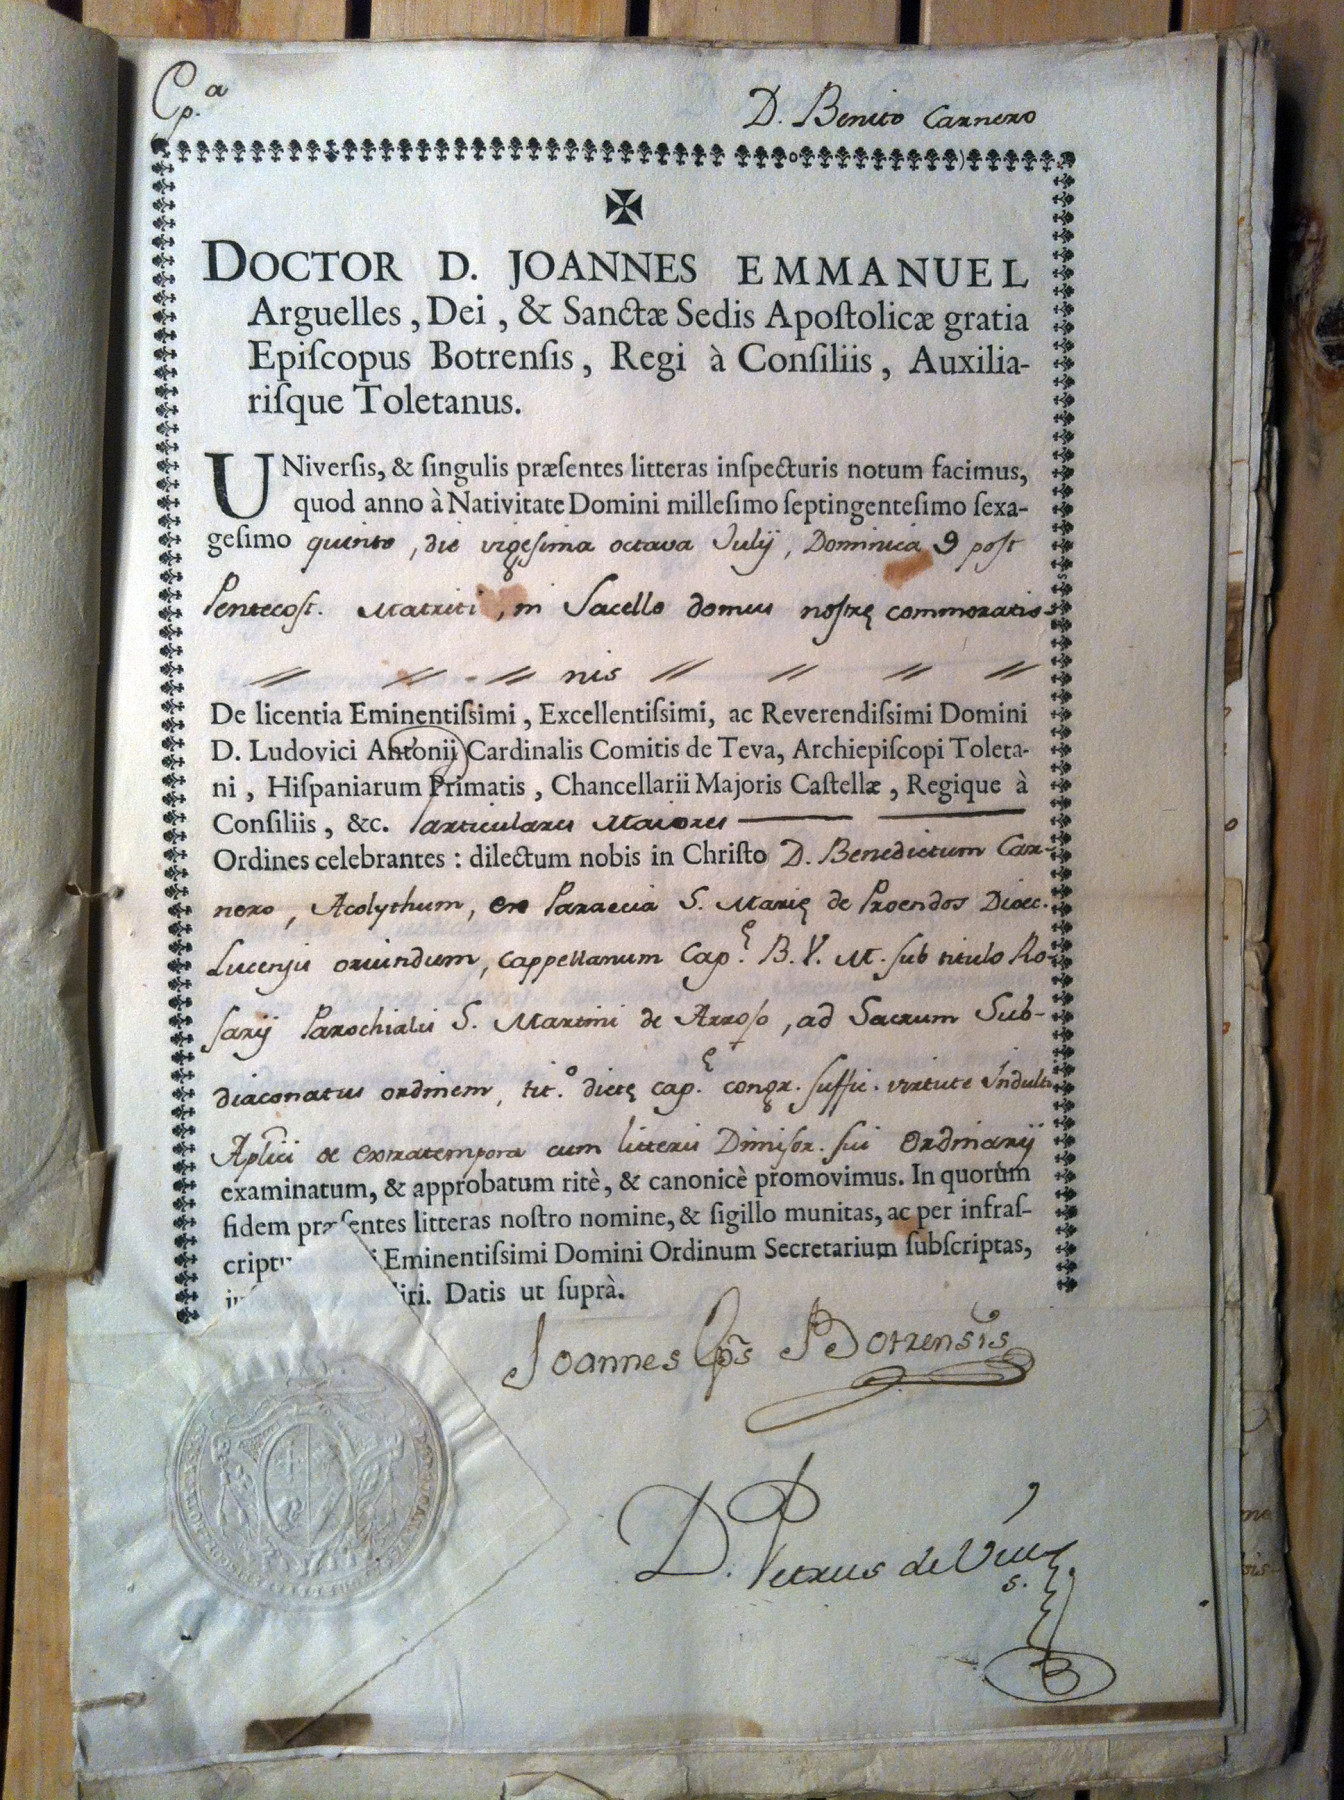 Cp.ª
D. Benito Carnero
✠
DOCTOR D. JOANNES EMMANUEL
Arguelles, Dei, & Sanctæ Sedis Apoſtolicæ gratia
Epiſcopus Botrenſis, Regi à Conſiliis, Auxilia-
riſque Toletanus.
UNiverſis, & ſingulis præſentes litteras inſpecturis notum facimus,
quod anno à Nativitate Domini milleſimo ſeptingenteſimo ſexa-
geſimo quinto, die vigeſima octava Julij, Dominica 9 poſt
Pentecoſt. Matriti, in Sacello domus noſtrę commoratio-
nis
De licentia Eminentiſsimi, Excellentiſsimi, ac Reverendiſsimi Domini
D. Ludovici Antonii Cardinalis Comitis de Teva, Archiepiſcopi Toleta-
ni, Hiſpaniarum Primatis, Chancellarii Majoris Caſtellæ, Regique à
Conſiliis, &c. Particulares Maiores
Ordines celebrantes: dilectum nobis in Chriſto D. Benedictum Car-
nero, Acolythum, ex Paraecia S. Marię de Proendos Dioec.
Lucensis oriundum, Cappellanum Cap.ę B. V. M. sub titulo Ro-
sarij Parochialis S. Martini de Arroſo, ad Sacrum Sub-
diaconatus ordinem, tit.º dictę cap.ę congr. ſuffic. virtute Indulti
Aplici et extratempora cum litteris Dimiſor. ſui Ordinarij
examinatum, & approbatum ritè, & canonicè promovimus. In quorum
fidem præſentes litteras noſtro nomine, & ſigillo munitas, ac per infraſ-
criptu Eminentiſsimi Domini Ordinum Secretarium ſubſcriptas,
iri. Datis ut ſuprà.
Joannes Epũs Botrensis
D. Petrus de